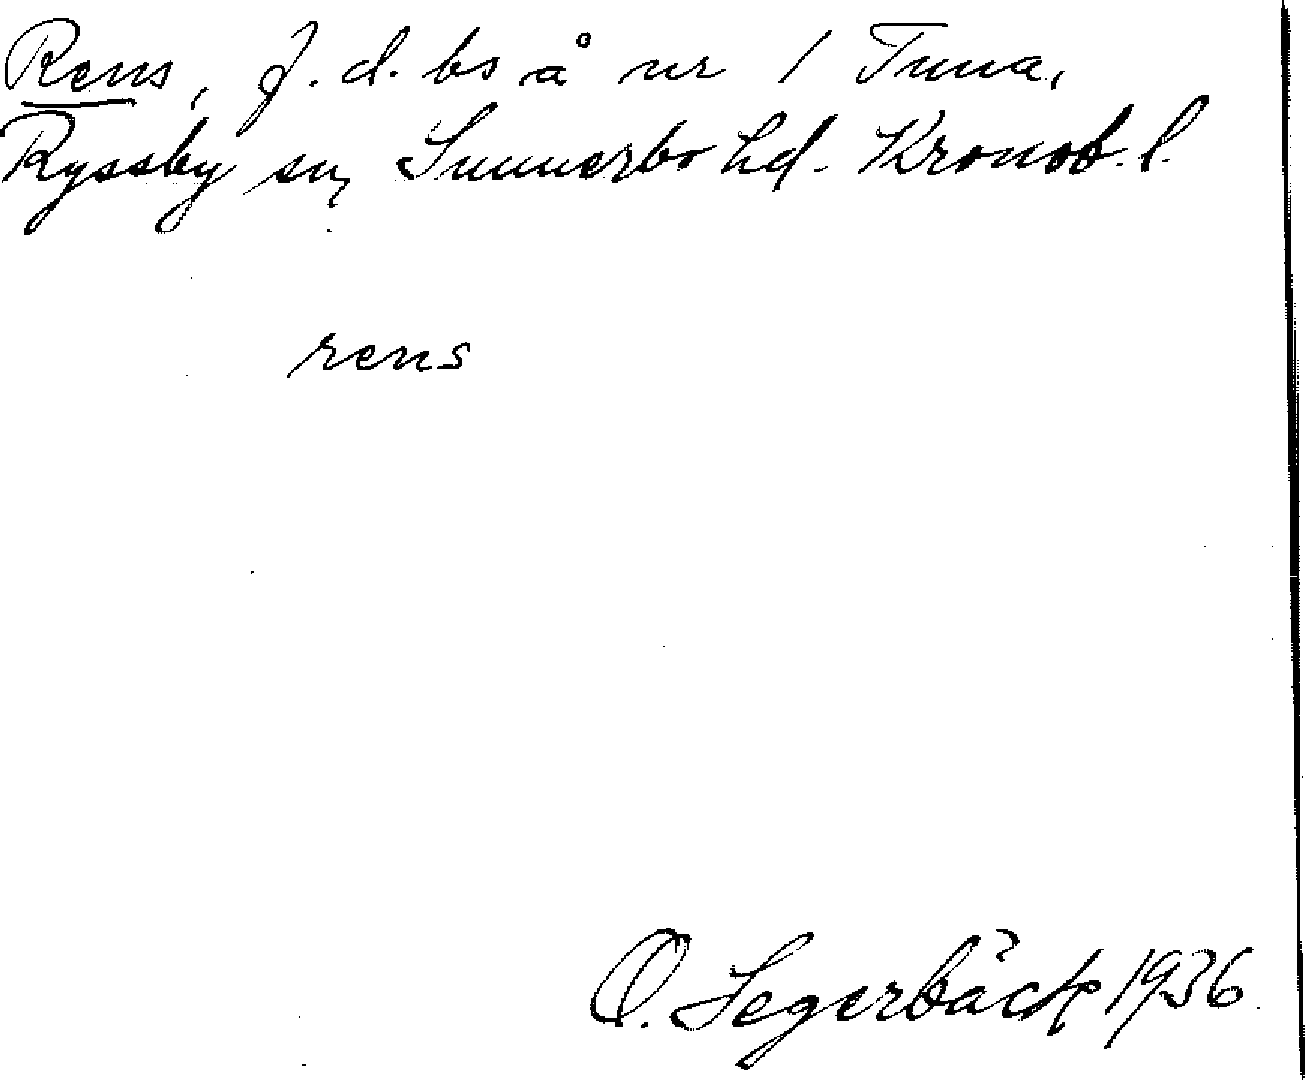 Rens, f. d. bs å nr 1 Tuna,
Ryssby sn, Sunnerbo hd. Kronob. l.
rens
O. Segerbäck 1936